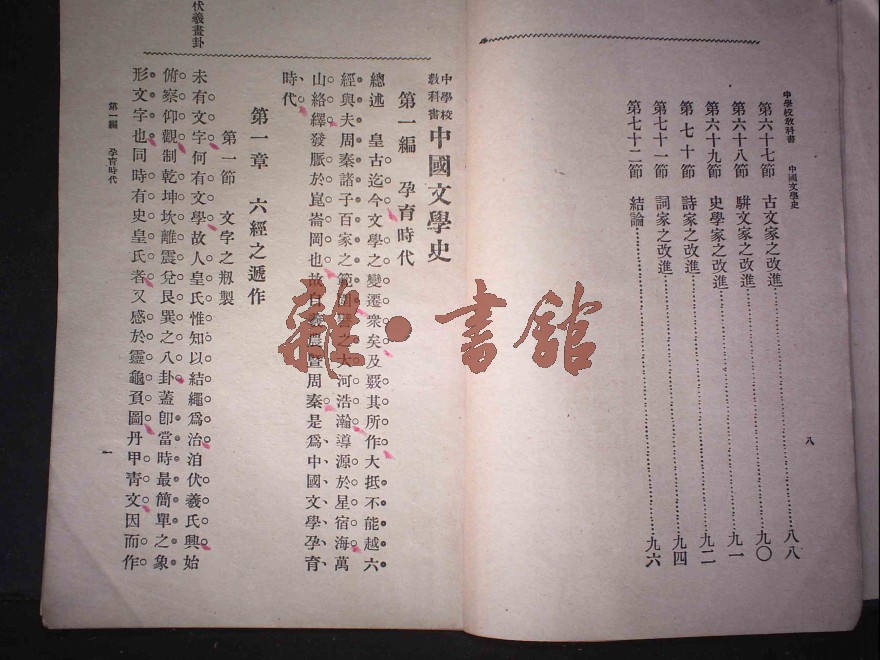 中學校教科書 中國文學史
第六十七節 古文家之改進 八八
第六十八節 駢文家之改進 九〇
第六十九節 史學家之改進 九一
第七十節 詩家之改進 九二
第七十一節 詞家之改進 九四
第七十二節 結論 九六
八
伏羲畫卦
中學校教科書 中國文學史
第一編 孕育時代
總述 皇古迄今文學之變遷衆矣及覈其所作大抵不能越六
經與夫周秦諸子百家之範圍譬之大河浩瀚導源於星宿海萬
山絡繹發脈於崑崙岡也故自羲農暨周秦是爲中國文學孕育
時代
第一章 六經之遞作
第一節 文字之剏製
未有文字何有文學故人皇氏惟知以結繩爲治洎伏羲氏興始
俯察仰觀制乾坤坎離震兌艮巽之八卦蓋卽當時最簡單之象
形文字也同時有史皇氏者又感於靈龜負圖丹甲青文因而作
第一編 孕育時代
一
雜·書館